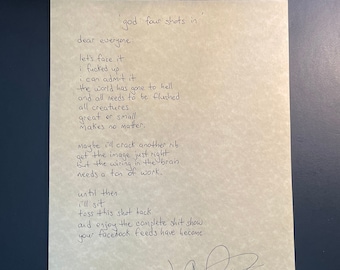 god four shots in
dear everyone
let's face it
i fucked up
i can admit it
the world has gone to hell
and all needs to be flushed
all creatures
great or small
makes no matter.
maybe i'll crack another rib
get the image just right
but the wiring in the brain
needs a ton of work.
until then
i'll sit,
toss this shot back
and enjoy the complete shit show
your facebook feeds have become